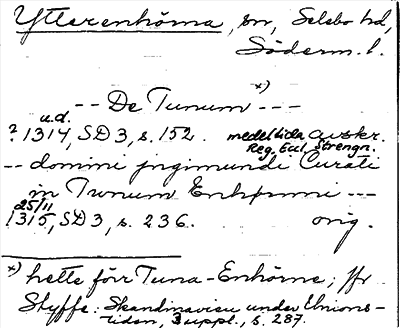 Ytterenhörna, sn, Selebo hd,
Söderm. l.
-- De Tunum x) ---
u.d.
? 1314, SD 3, s. 152. medeltida avskr.
Reg. Eccl. Strengn.
-- domini jngimundi Curati
in Twnum Enhørnni ---
25/11
1315, SD 3, s. 236. orig.
x) hette förr Tuna-Enhörne; jfr
Styffe: Skandinavien under Unions-
tiden, 3 uppl., s. 287.